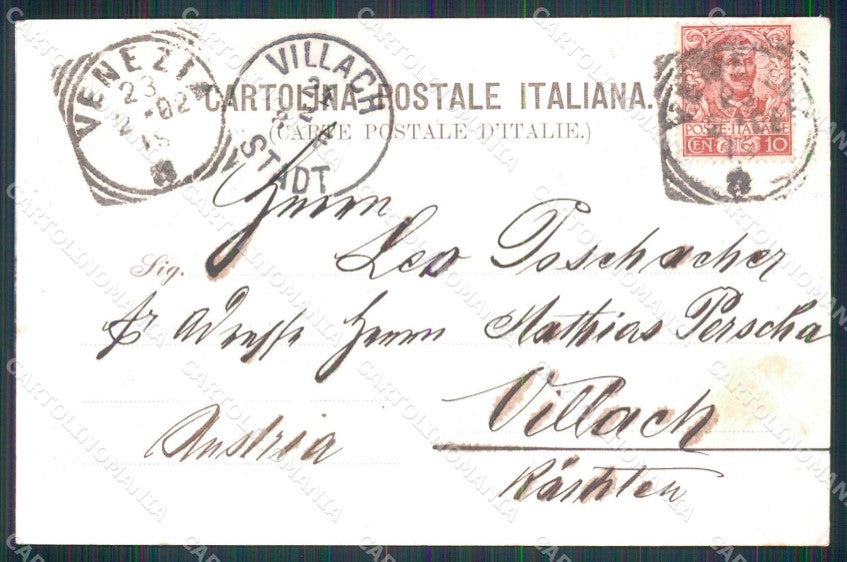 VENEZIA
23
2-02
VILLACH
STADT
CARTOLINA POSTALE ITALIANA.
(CARTE POSTALE D'ITALIE.)
POSTE·ITALIANE
CEN 10
Herrn
Sig. Leo Poschacher
Adresse Herrn Mathias Perscha
Villach
Austria
Kärnten
CARTOLINOMANIA